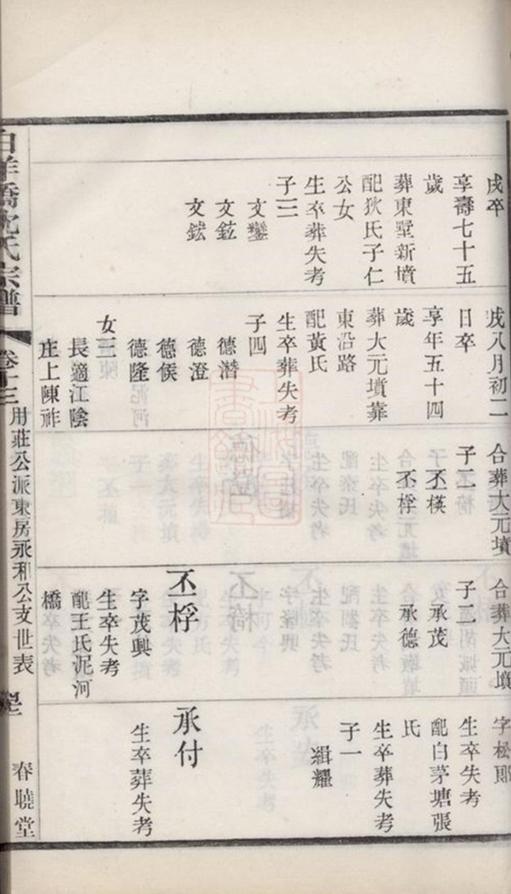 戌卒
享壽七十五
歲
葬東墅新墳
配狄氏子仁
公女
生卒葬失考
子三
文鑾
文鈜
文鋐
戌八月初二
日卒
享年五十四
歲
葬大元墳葬
東沿路
配黃氏
生卒葬失考
子四
德潛
德澄
德俟
德隆
女三
長適江陰
庄上陳祚
合葬大元墳
子二
丕模
丕桴
合葬大元墳
子二
承茂
承德
丕桴
字茂興
生卒失考
配王氏泥河
橋
字松郎
生卒失考
配白茅塘張
氏
生卒葬失考
子一
緝耀
承付
生卒葬失考
白洋橋沈氏宗譜
卷十三
財莊公派東房永和公支世表
春曉堂